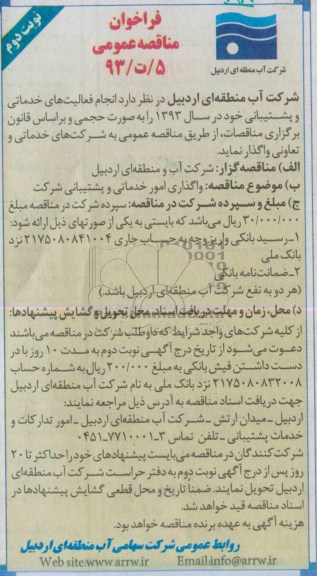 نوبت دوم
فراخوان
مناقصه عمومی
۵/ت/۹۳
شرکت آب منطقه ای اردبیل
شرکت آب منطقه‌ای اردبیل در نظر دارد انجام فعالیت‌های خدماتی
و پشتیبانی خود در سال ۱۳۹۳ را به صورت حجمی و براساس قانون
برگزاری مناقصات، از طریق مناقصه عمومی به شرکت‌های خدماتی و
تعاونی واگذار نماید.
الف) مناقصه‌گزار: شرکت آب و منطقه‌ای اردبیل
ب) موضوع مناقصه: واگذاری امور خدماتی و پشتیبانی شرکت
ج) مبلغ و سپرده شرکت در مناقصه: سپرده شرکت در مناقصه مبلغ
۳۰/۰۰۰/۰۰۰ ریال می‌باشد که بایستی به یکی از صورتهای ذیل ارائه شود:
۱ـ رسید بانکی واریز وجه به حساب جاری ۲۱۷۵۰۸۰۸۴۱۰۰۴ نزد
بانک ملی
۲ـ ضمانت‌نامه بانکی
(هر دو به نفع شرکت آب منطقه‌ای اردبیل باشد.)
د) محل، زمان و مهلت دریافت اسناد، محل تحویل و گشایش پیشنهادها:
از کلیه شرکت‌های واجد شرایط که داوطلب شرکت در مناقصه می‌باشند
دعوت می‌شود از تاریخ درج آگهی نوبت دوم به مدت ۱۰ روز با در
دست داشتن فیش بانکی به مبلغ ۲۰۰/۰۰۰ ریال به شماره حساب
۲۱۷۵۰۸۰۸۳۲۰۰۸ نزد بانک ملی به نام شرکت آب منطقه‌ای اردبیل
جهت دریافت اسناد مناقصه به آدرس ذیل مراجعه نمایند:
اردبیل ـ میدان ارتش ـ شرکت آب منطقه‌ای اردبیل ـ امور تدارکات و
خدمات پشتیبانی ـ تلفن تماس ۳ـ۷۷۱۰۰۰۱ـ۰۴۵۱
شرکت کنندگان در مناقصه می‌بایست پیشنهادهای خود را حداکثر تا ۲۰
روز پس از درج آگهی نوبت دوم به دفتر حراست شرکت آب منطقه‌ای
اردبیل تحویل نمایند. ضمناً تاریخ و محل قطعی گشایش پیشنهادها در
اسناد مناقصه قید خواهد شد.
هزینه آگهی به عهده برنده مناقصه خواهد بود.
روابط عمومی شرکت سهامی آب منطقه‌ای اردبیل
Web site:www.arrw.ir Email:info@arrw.ir